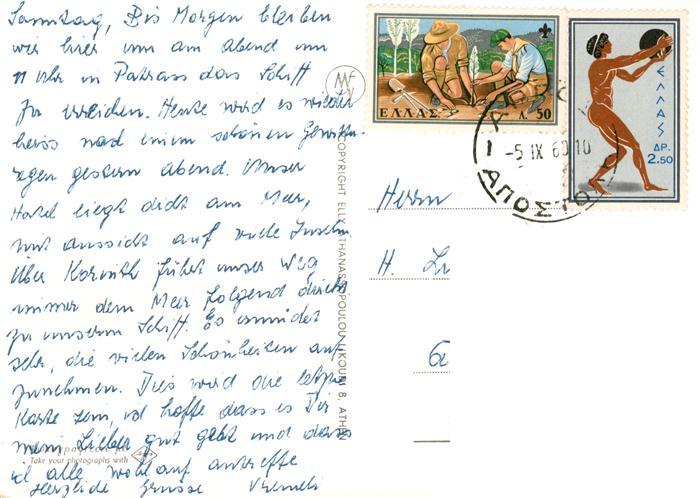 Samstag, Bis Morgen bleiben
wir hier um am abend um
11 Uhr in Patrass das Schiff
zu erreichen. Heute wird es wieder
heiss nach einem schönen Gewitter-
regen gestern abend. Unser
Hotel liegt dicht am Meer,
mit aussicht auf viele Inseln
Über Korinth führt unser Weg
immer dem Meer folgend direkt
zu unserem Schiff. Es ermüdet
sehr, die vielen Schönheiten auf
zunehmen. Dies wird die letzte
Karte sein, ich hoffe dass es Dir
mein Lieber gut geht und dass
ich alle wohlauf antreffe
Herzliche Grüsse Vreneli
COPYRIGHT ELLY ATHANASSOPOULOU, 8, ATHIN
Take your photographs with
ΕΛΛΑΣ Λ. 50
ΕΛΛΑΣ
ΔΡ.
2.50
-5 IX 60 10
ΑΠΟΣΤΟΛ
Herrn
H.